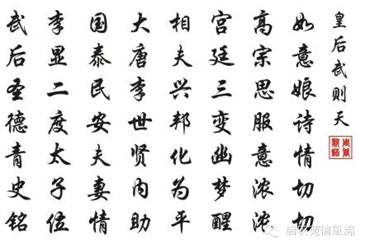 皇后武则天
如意娘诗情切切
高宗思服意浓浓
宫廷三变幽梦醒
相夫兴邦化为平
大唐李世贤内助
国泰民安夫妻情
李显二度太子位
武后圣德青史铭